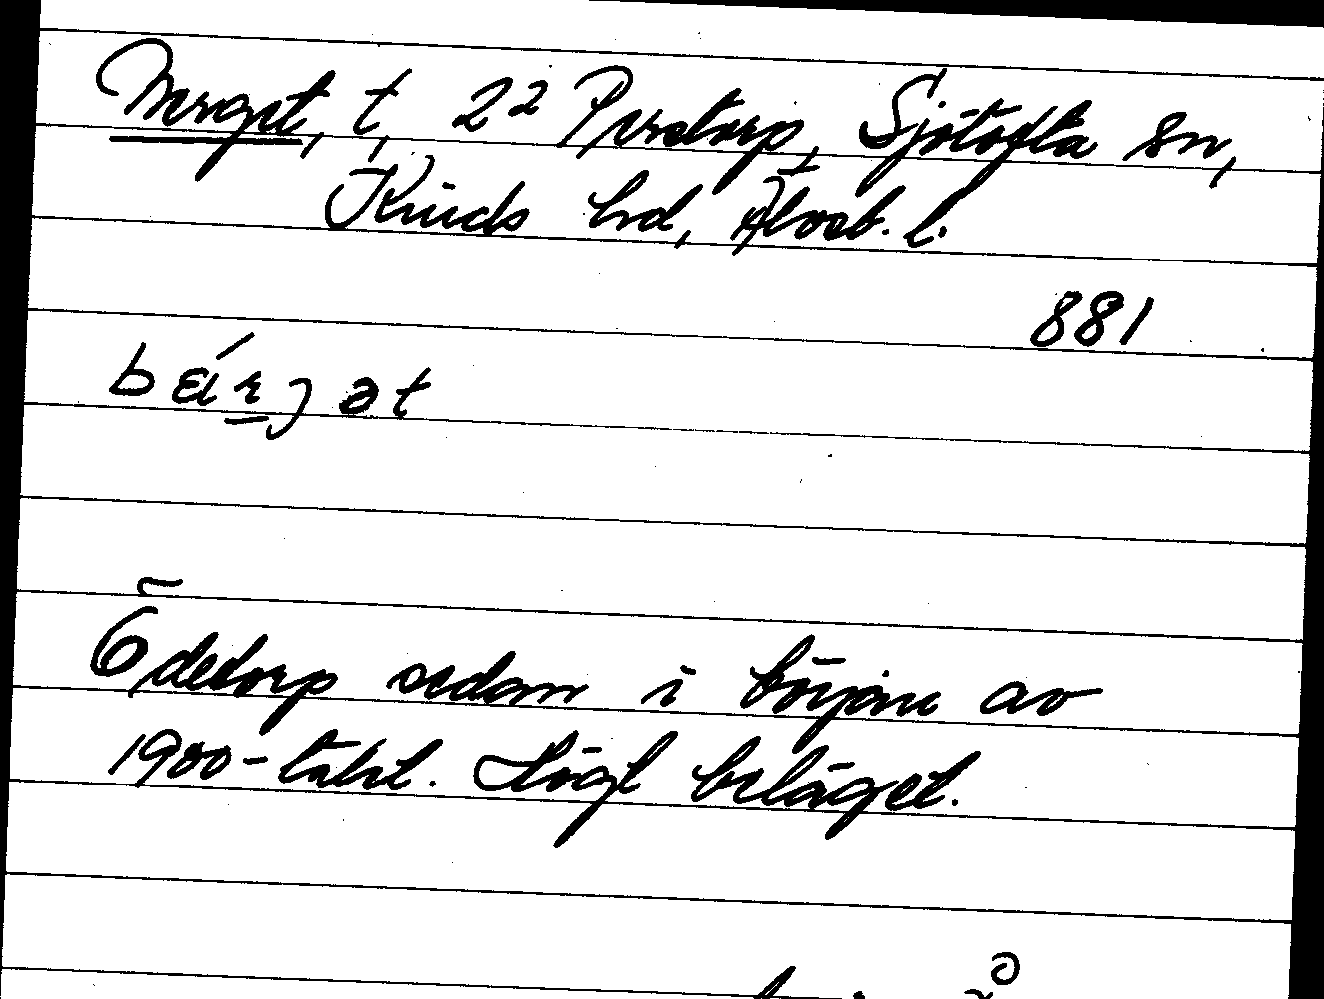 Berget, t, 2² Perstorp, Sjötofta sn,
Kinds hd, Älvsb. l.
881
bǽrjət
Ödetorp sedan i början av
1900-talet. Högt beläget.